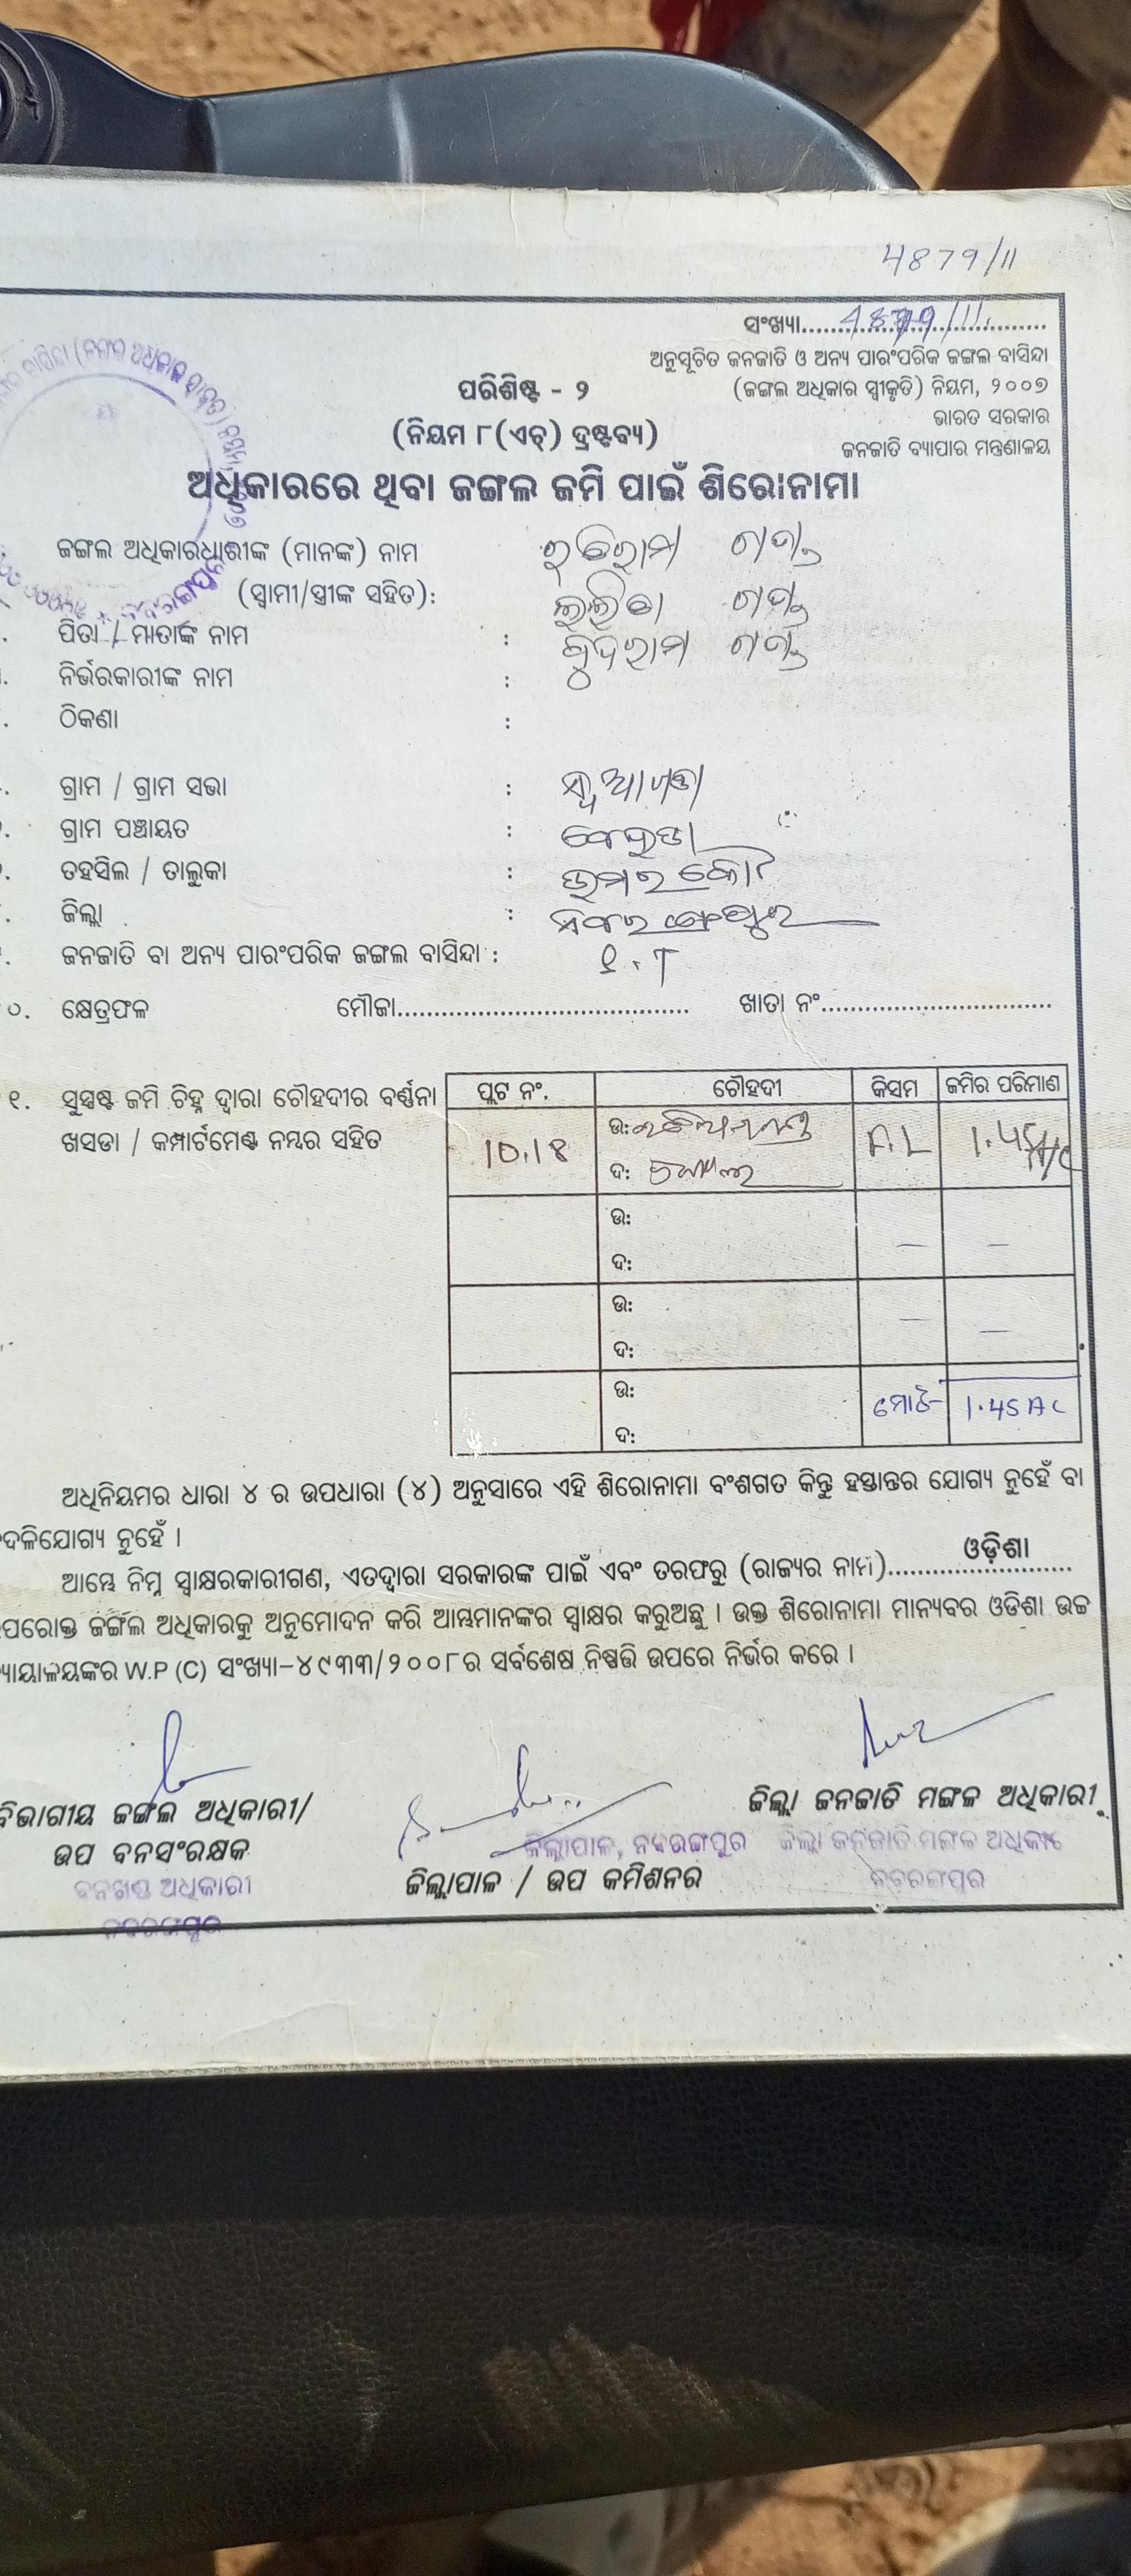 4879/11
ସଂଖ୍ୟା............4879/11............
ଅନୁସୂଚିତ ଜନଜାତି ଓ ଅନ୍ୟ ପାରଂପରିକ ଜଙ୍ଗଲ ବାସିନ୍ଦା
ପରିଶିଷ୍ଟ - ୨
(ଜଙ୍ଗଲ ଅଧିକାର ସ୍ୱୀକୃତି) ନିୟମ, ୨୦୦୭
ଭାରତ ସରକାର
(ନିୟମ ୮(ଏଚ୍) ଦ୍ରଷ୍ଟବ୍ୟ)
ଜନଜାତି ବ୍ୟାପାର ମନ୍ତ୍ରଣାଳୟ
ଅଧିକାରରେ ଥିବା ଜଙ୍ଗଲ ଜମି ପାଇଁ ଶିରୋନାମା
ଜଙ୍ଗଲ ଅଧିକାରଧାରୀଙ୍କ (ମାନଙ୍କ) ନାମ
(ସ୍ୱାମୀ/ସ୍ତ୍ରୀଙ୍କ ସହିତ):
ପିତା / ମାତାଙ୍କ ନାମ :
ନିର୍ଭରକାରୀଙ୍କ ନାମ :
ଠିକଣା :
ଗ୍ରାମ / ଗ୍ରାମ ସଭା :
ଗ୍ରାମ ପଞ୍ଚାୟତ :
ତହସିଲ / ତାଲୁକା : ଉମରକୋଟ
ଜିଲ୍ଲା : ନବରଙ୍ଗପୁର
ଜନଜାତି ବା ଅନ୍ୟ ପାରଂପରିକ ଜଙ୍ଗଲ ବାସିନ୍ଦା : S.T
୦. କ୍ଷେତ୍ରଫଳ ମୌଜା.................................... ଖାତା ନଂ............................
୧. ସୁସ୍ପଷ୍ଟ ଜମି ଚିହ୍ନ ଦ୍ୱାରା ଚୌହଦୀର ବର୍ଣ୍ଣନା
ଖସଡା / କମ୍ପାର୍ଟମେଣ୍ଟ ନମ୍ବର ସହିତ
ପ୍ଲଟ ନଂ. ଚୌହଦୀ କିସମ ଜମିର ପରିମାଣ
ଉ:
10.18 A.L 1.45AC
ଦ:
ଉ:
ଦ: — —
ଉ:
ଦ: — —
ଉ:
ମୋଟ- 1.45 AC
ଦ:
ଅଧିନିୟମର ଧାରା ୪ ର ଉପଧାରା (୪) ଅନୁସାରେ ଏହି ଶିରୋନାମା ବଂଶଗତ କିନ୍ତୁ ହସ୍ତାନ୍ତର ଯୋଗ୍ୟ ନୁହେଁ ବା
ଦଳିଯୋଗ୍ୟ ନୁହେଁ ।
ଆମ୍ଭେ ନିମ୍ନ ସ୍ୱାକ୍ଷରକାରୀଗଣ, ଏତଦ୍ୱାରା ସରକାରଙ୍କ ପାଇଁ ଏବଂ ତରଫରୁ (ରାଜ୍ୟର ନାମ).........ଓଡ଼ିଶା.........
ପରୋକ୍ତ ଜଙ୍ଗଲ ଅଧିକାରକୁ ଅନୁମୋଦନ କରି ଆମ୍ଭମାନଙ୍କର ସ୍ୱାକ୍ଷର କରୁଅଛୁ । ଉକ୍ତ ଶିରୋନାମା ମାନ୍ୟବର ଓଡିଶା ଉଚ୍ଚ
ନ୍ୟାୟାଳୟଙ୍କର W.P (C) ସଂଖ୍ୟା–୪୯୩୩/୨୦୦୮ର ସର୍ବଶେଷ ନିଷ୍ପତ୍ତି ଉପରେ ନିର୍ଭର କରେ ।
ବିଭାଗୀୟ ଜଙ୍ଗଲ ଅଧିକାରୀ/
ଉପ ବନସଂରକ୍ଷକ
ବନଖଣ୍ଡ ଅଧିକାରୀ
ନବରଙ୍ଗପୁର
ଜିଲ୍ଲାପାଳ, ନବରଙ୍ଗପୁର
ଜିଲ୍ଲାପାଳ / ଉପ କମିଶନର
ଜିଲ୍ଲା ଜନଜାତି ମଙ୍ଗଳ ଅଧିକାରୀ
ଜିଲ୍ଲା ଜନଜାତି ମଙ୍ଗଳ ଅଧିକାରୀ
ନବରଙ୍ଗପୁର